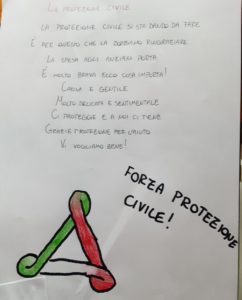 LA PROTEZIONE CIVILE
LA PROTEZIONE CIVILE SI STA DANDO DA FARE
È PER QUESTO CHE LA DOBBIAMO RINGRAZIARE
LA SPESA AGLI ANZIANI PORTA
È MOLTO BRAVA ECCO COSA IMPORTA!
CALMA E GENTILE
MOLTO DELICATA E SENTIMENTALE
CI PROTEGGE E A NOI CI TIENE
GRAZIE PROTEZIONE PER L'AIUTO
VI VOGLIAMO BENE!
FORZA PROTEZIONE
CIVILE!